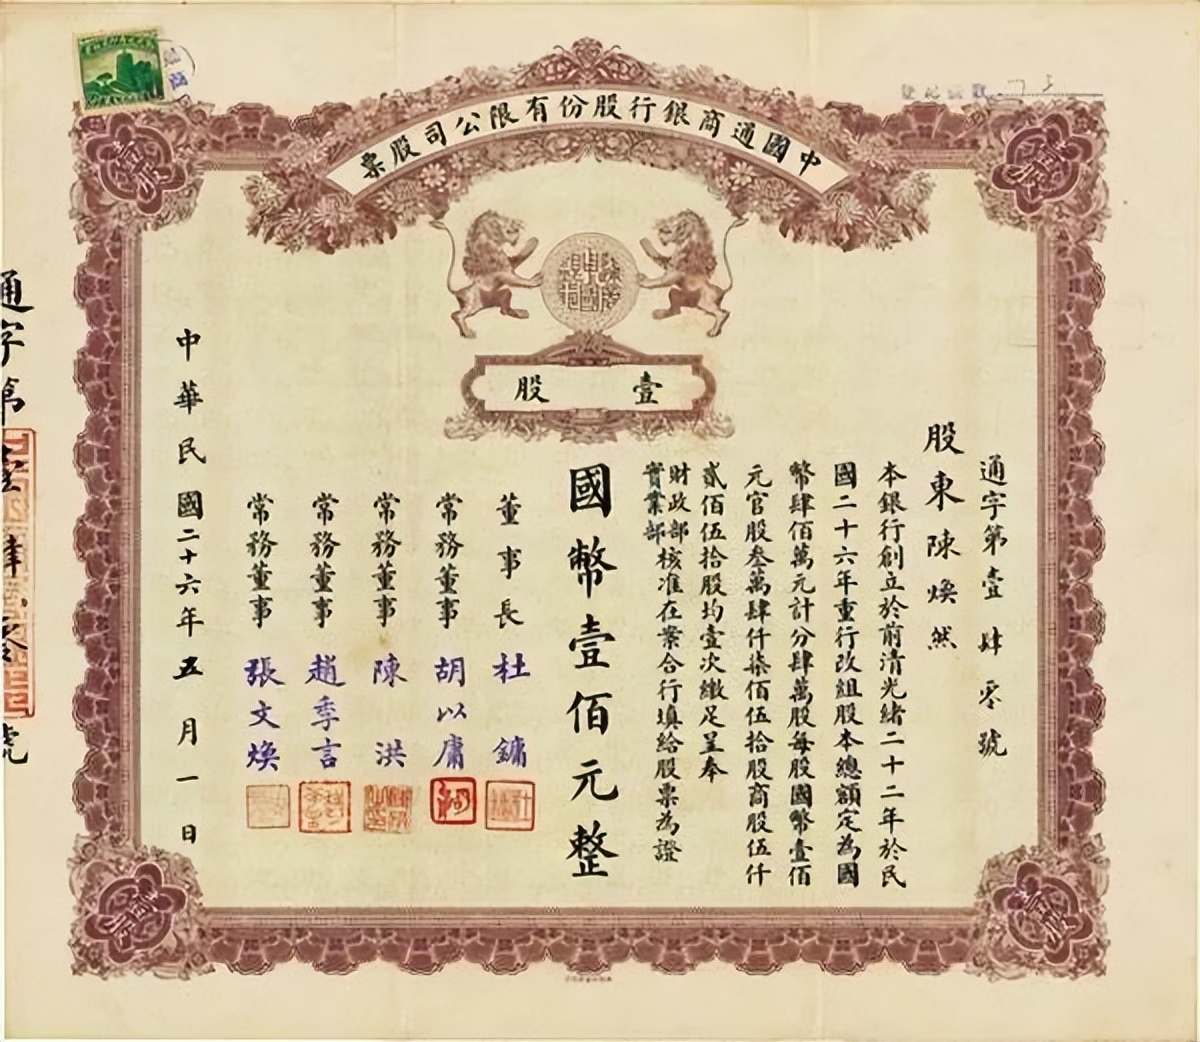 中國通商銀行股份有限公司股票
壹股
通字第壹肆零號
股東陳煥然
本銀行創立於前清光緒二十二年於民
國二十六年重行改組股本總額定為國
幣肆佰萬元計分肆萬股每股國幣壹佰
元官股叁萬肆仟柒佰伍拾股商股伍仟
貳佰伍拾股均壹次繳足呈奉
財政部
實業部
核准在案合行填給股票為證
國幣壹佰元整
董事長杜鏞
常務董事胡以庸
常務董事陳洪
常務董事趙季言
常務董事張文煥
中華民國二十六年五月一日